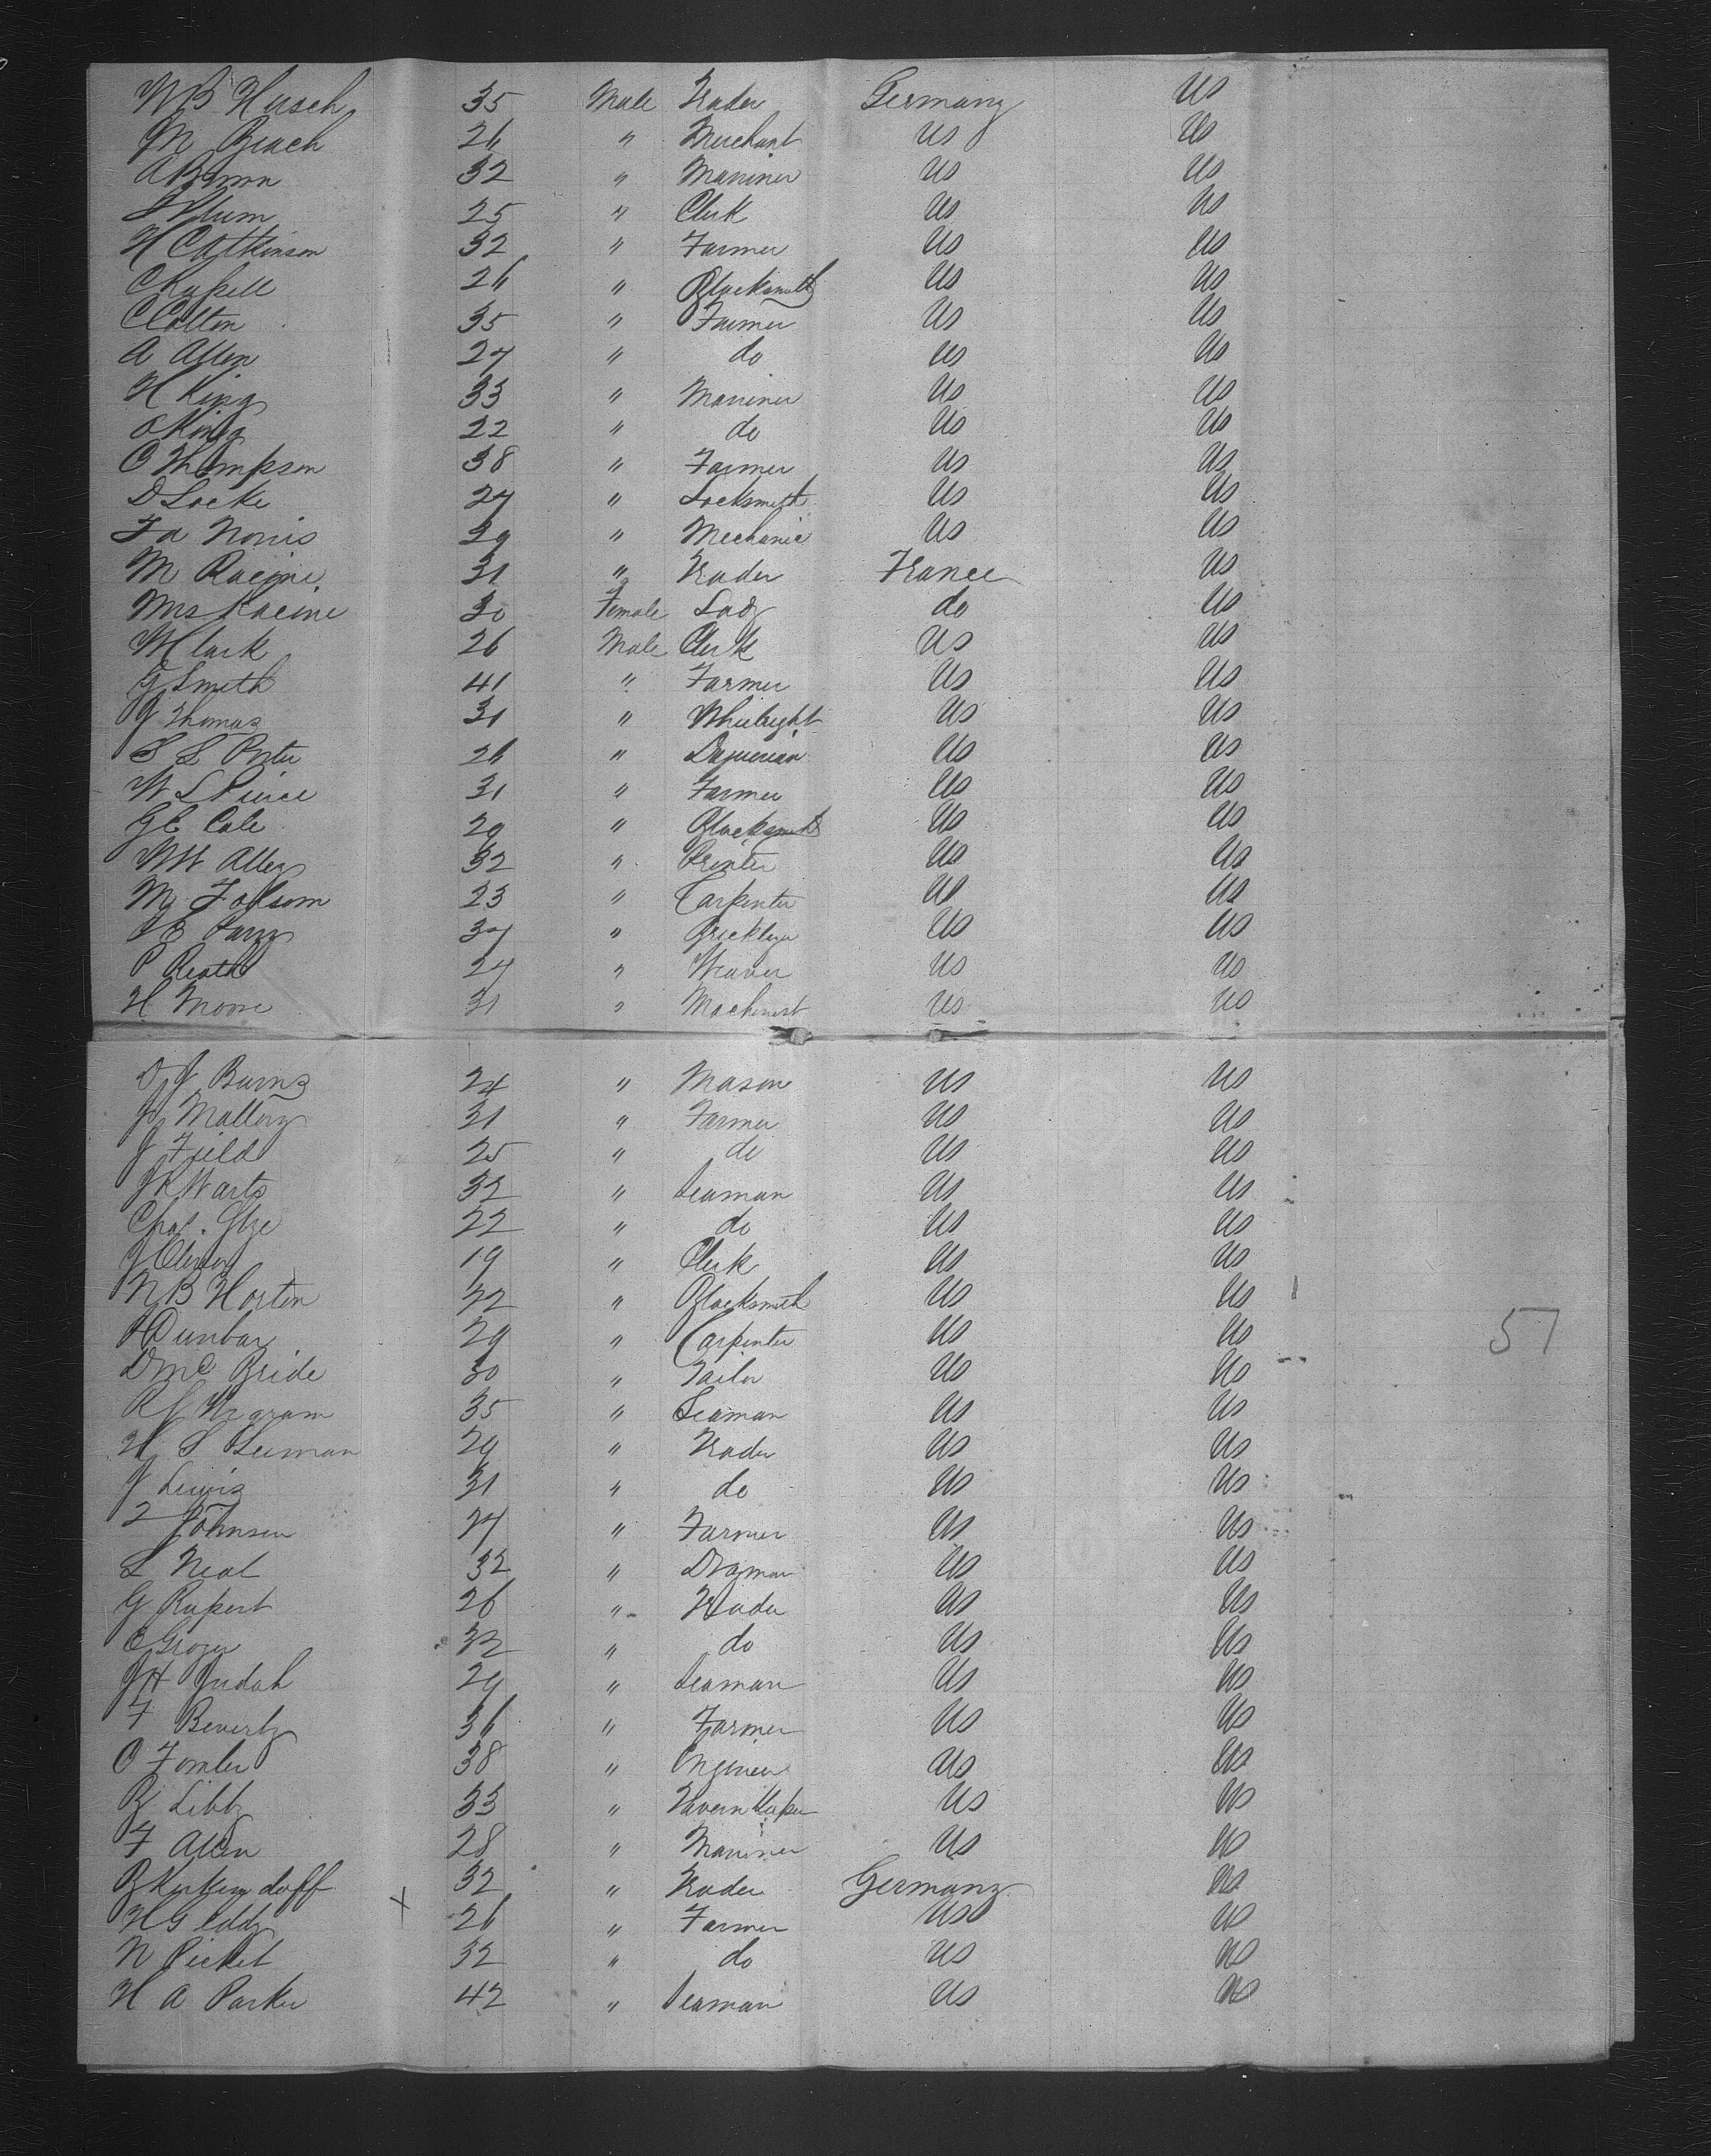 W B Husch 35 Male Trader Germany US
M Beach 26 " Merchant US US
A Brown 32 " Marriner US US
S Plum 25 " Clerk US US
H C Atkinson 32 " Farmer US US
C Rupell 26 " Blacksmith US US
C Colton 35 " Farmer US US
A Allen 27 " do US US
H King 33 " Marriner US US
O King 22 " do US US
O Thompson 38 " Farmer US US
D Locke 27 " Locksmith US US
F A Norris 29 " Mechanic US US
M Racine 31 " Trader France US
Mrs Racine 30 Female Lady do US
W Clark 26 Male Clerk US US
G Smith 41 " Farmer US US
J Thomas 31 " Whelright US US
S L Porter 26 " Daguerian US US
W L Pierce 31 " Farmer US US
G C Cole 29 " Blacksmith US US
W W Allen 32 " Printer US US
M Folsom 23 " Carpenter US US
37 " Bricklyer US US
P Heath 27 " Weaver US US
H Moore 31 " Machinist US US
D J Burns 24 " Mason US US
J Mallory 31 " Farmer US US
J Field 25 " do US US
J K Warts 32 " Seaman US US
Chas. 22 " do US US
J 19 " Clerk US US
N B Horton 32 " Blacksmith US US
H Dunbar 29 " Carpenter US US
D Mc Bride 30 " Tailor US US
35 " Seaman US US
H S Seeman 29 " Trader US US
J Lewis 31 " do US US
Johnson 27 " Farmer US US
L Neal 32 " Drayman US US
G Rupert 26 " Trader US US
32 " do US US
J H Judah 29 " Seaman US US
F Beverly 36 " Farmer US US
O Fowler 38 " Engineer US US
B Libby 33 " Tavern Keeper US US
F Allen 28 " Marriner US US
B 32 " Trader Germany US
H G Eddy X 26 " Farmer US US
N Picket 32 " do US US
H A Parker 42 " Seaman US US
57